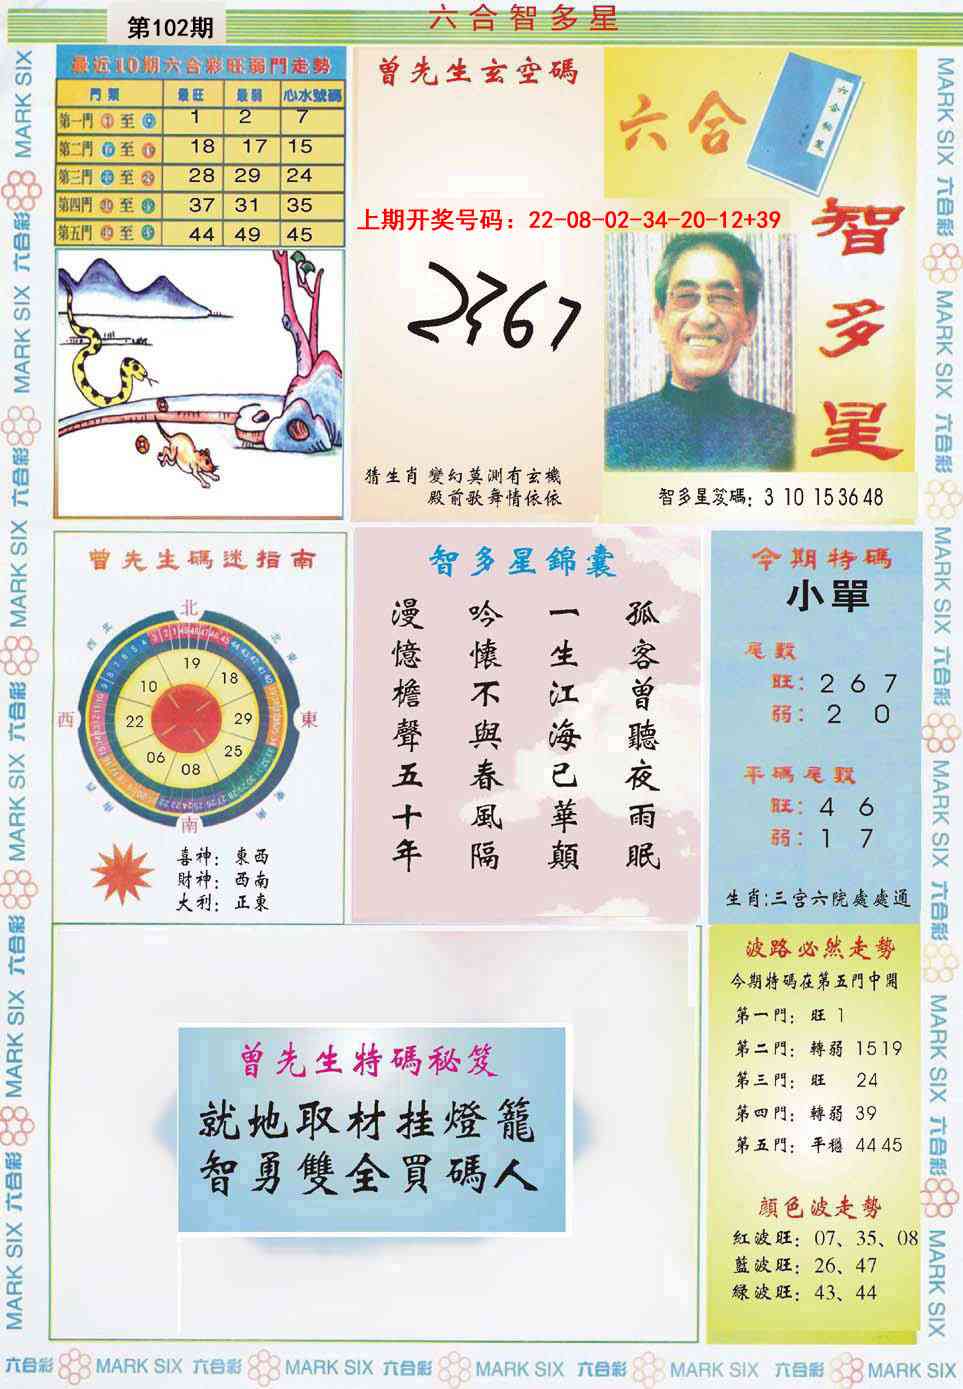 第102期
六合智多星
最近10期六合彩旺弱門走勢
門類 最旺 最弱 心水號碼
第一門 至 1 2 7
第二門 至 18 17 15
第三門 至 28 29 24
第四門 至 37 31 35
第五門 至 44 49 45
曾先生玄空碼
上期开奖号码：22-08-02-34-20-12+39
2367
猜生肖 變幻莫測有玄機
殿前歌舞情依依
六合
智多星
智多星笈碼：3 10 15 36 48
曾先生碼迷指南
北
東
南
西
東北
西北
西南
東南
19
18
29
25
08
06
22
10
喜神：東西
財神：西南
大利：正東
智多星錦囊
孤客曾聽夜雨眠
一生江海已華顛
吟懷不與春風隔
漫憶檐聲五十年
今期特碼
小單
尾數
旺：2 6 7
弱：2 0
平碼尾數
旺：4 6
弱：1 7
生肖:三宮六院處處通
曾先生特碼秘笈
就地取材挂燈籠
智勇雙全買碼人
波路必然走勢
今期特碼在第五門中開
第一門：旺 1
第二門：轉弱 15 19
第三門：旺 24
第四門：轉弱 39
第五門：平穩 44 45
顏色波走勢
紅波旺：07、35、08
藍波旺：26、47
綠波旺：43、44
六合彩 MARK SIX 六合彩 MARK SIX 六合彩 MARK SIX 六合彩 MARK SIX 六合彩 MARK SIX